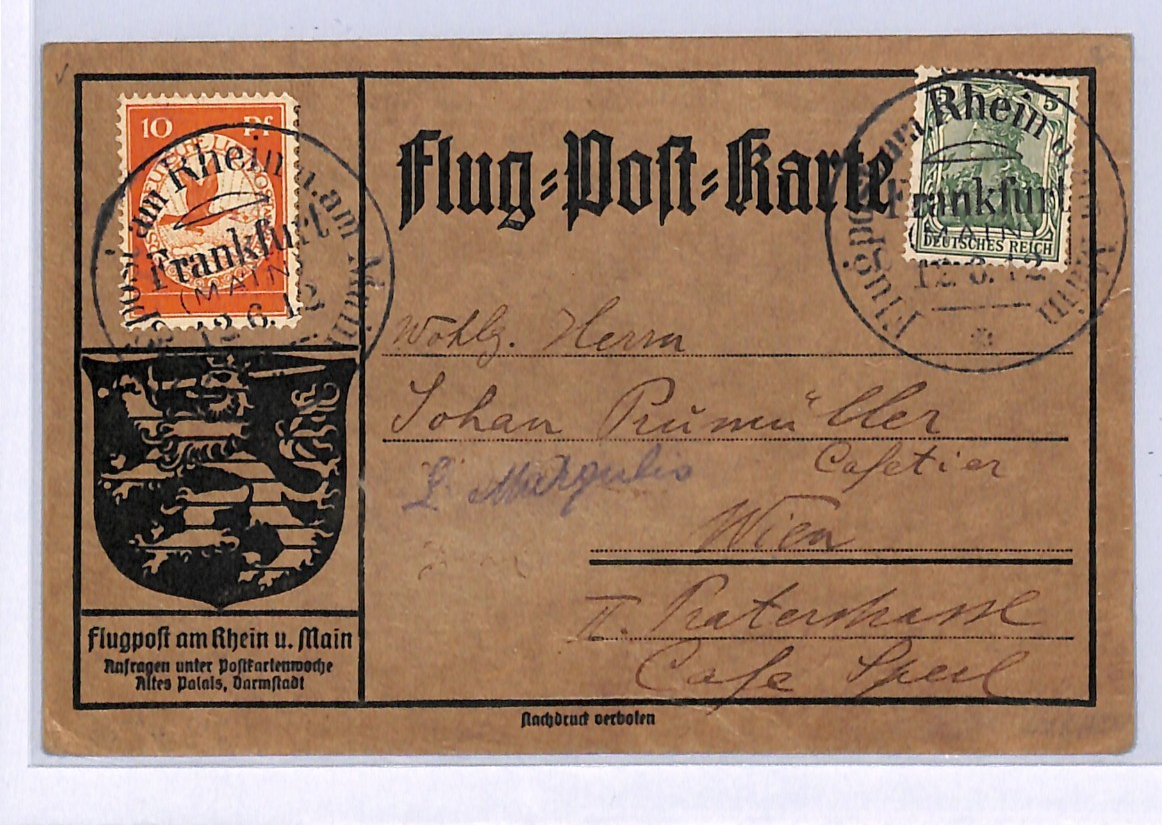 10 Pf
Flugpost am Rhein u. am Main
Frankfurt
(MAIN)
12.6.12
Flug-Post-Karte
5 5
DEUTSCHES REICH
Flugpost am Rhein u. am Main
Frankfurt
(MAIN)
12.6.12
Wohlg. Herrn
Johan
Cafetier
L. Margulis
Wien
II. Praterstrasse
Cafe Sperl
Flugpost am Rhein u. Main
Anfragen unter Postkartenwoche
Altes Palais, Darmstadt
Nachdruck verboten